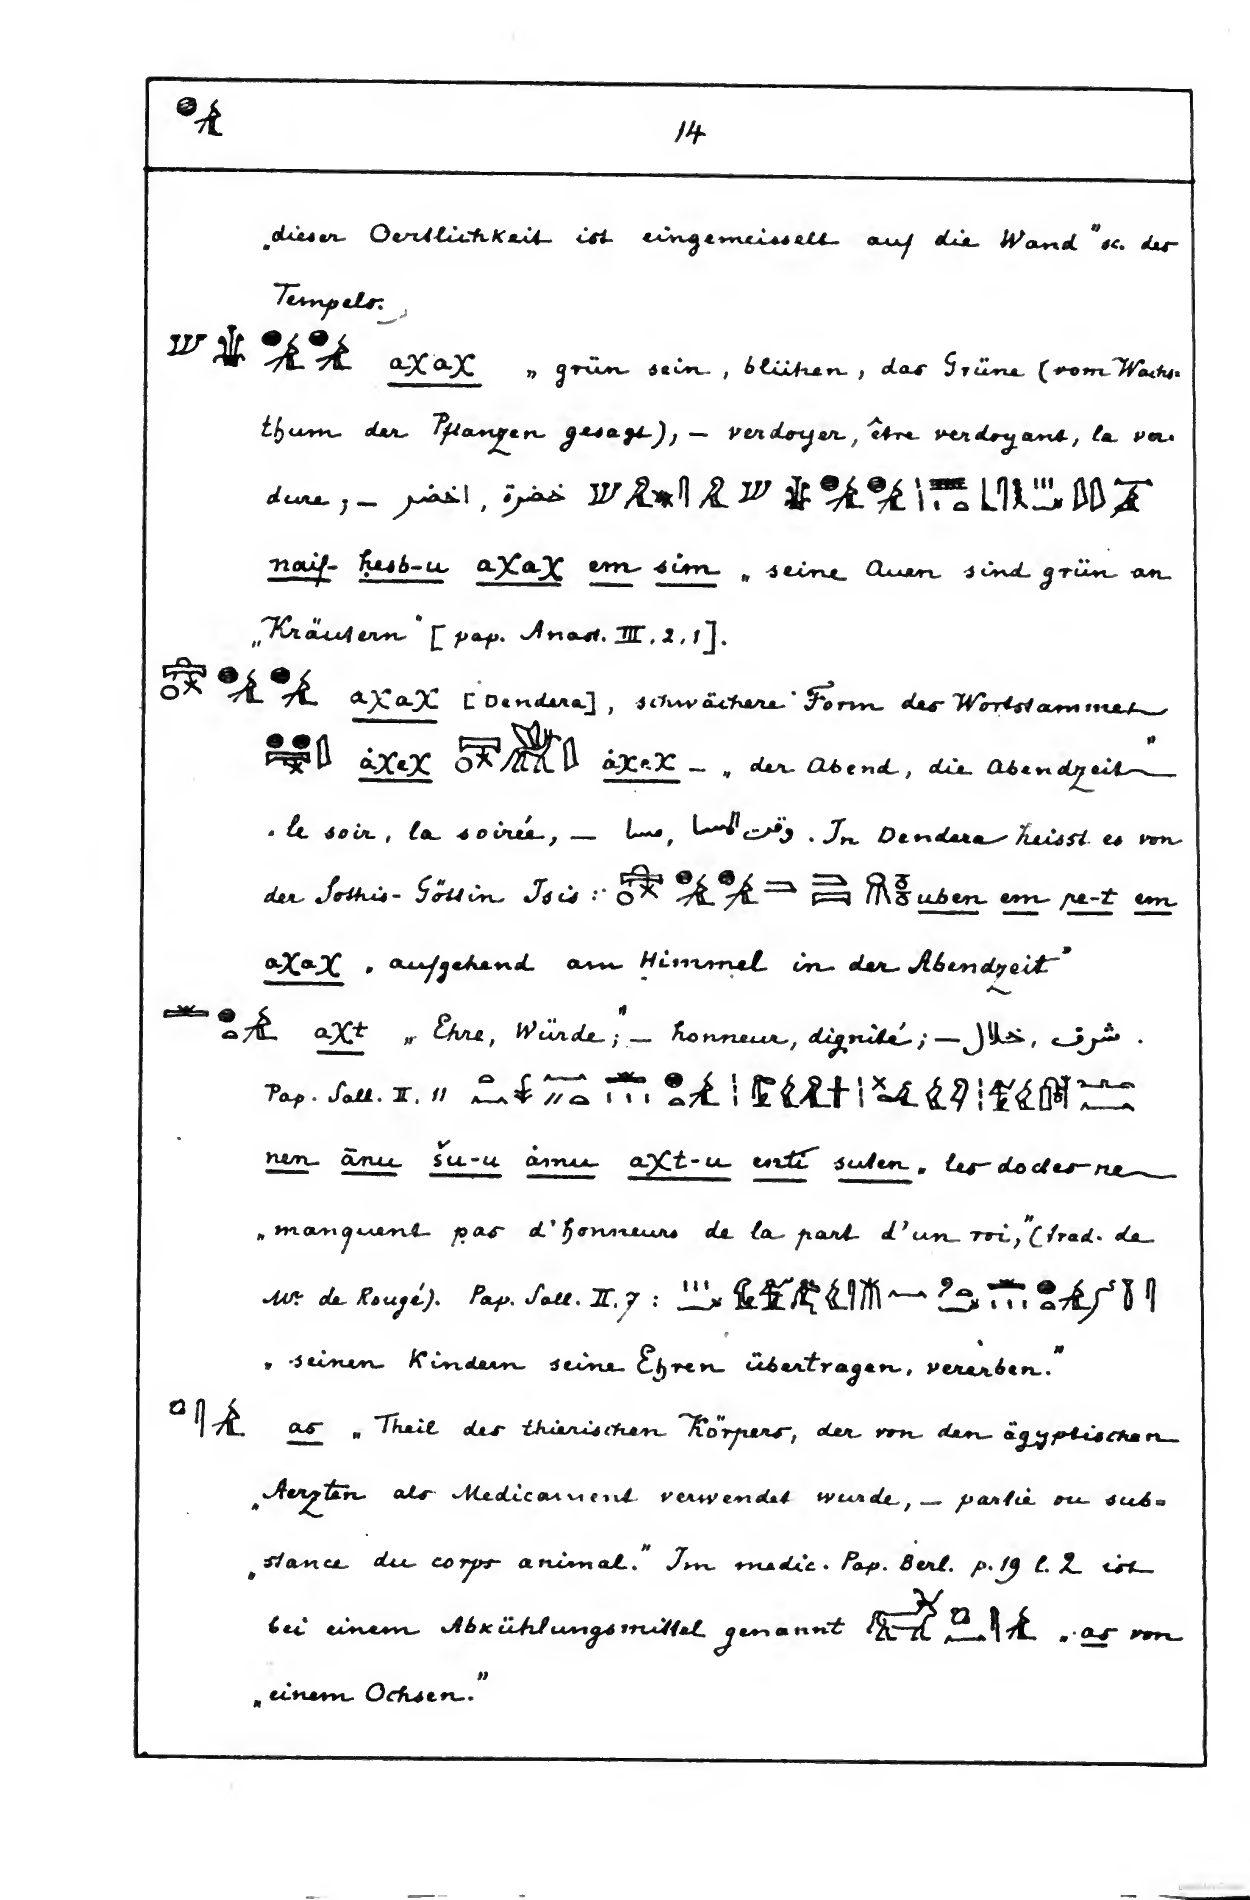 14
„dieser Oertlichkeit ist eingemeisselt auf die Wand" sc. des
Tempels.
aχaχ „grün sein, blühen, das Grüne (vom Wachs-
thum der Pflanzen gesagt), — verdoyer, être verdoyant, la ver-
dure; — اخضر, خضرة
naif- ḥesb-u aχaχ em sim „seine Auen sind grün an
„Kräutern" [pap. Anast. III. 2, 1].
aχaχ [Dendera], schwächere Form des Wortstammes
ȧχeχ ȧχeχ — „der Abend, die Abendzeit"
„le soir, la soirée, — مسا, وقت المسا. In Dendera heisst es von
der Sothis-Göttin Isis: uben em pe-t em
aχaχ „aufgehend am Himmel in der Abendzeit"
aχt „Ehre, Würde"; — honneur, dignité; — خلال, شرف.
Pap. Sall. II. 11
nen ānu šu-u ȧmu aχt-u enti suten „les doctes ne
„manquent pas d'honneurs de la part d'un roi," (trad. de
Mr. de Rougé). Pap. Sall. II. 7:
„seinen Kindern seine Ehren übertragen, vererben."
as „Theil des thierischen Körpers, der von den ägyptischen
„Aerzten als Medicament verwendet wurde, — partie ou sub-
„stance du corps animal." Im medic. Pap. Berl. p. 19 l. 2 ist
bei einem Abkühlungsmittel genannt „as von
„einem Ochsen."